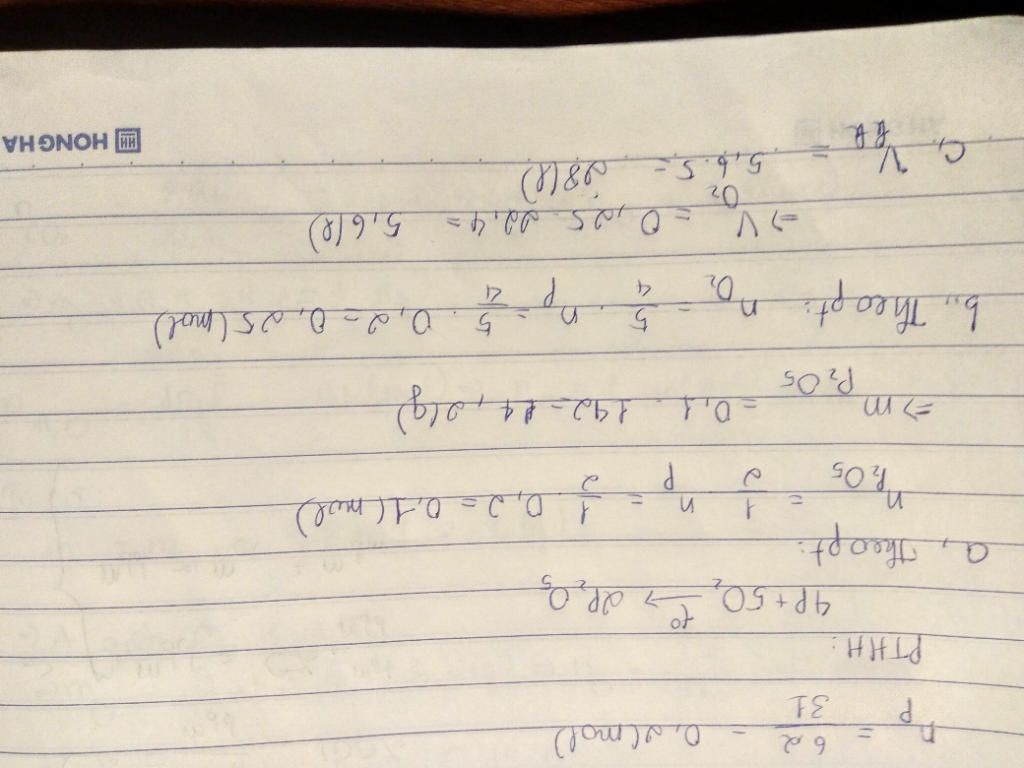 n_P = 62/31 = 0,2 (mol)
PTHH:
4P + 5O₂ —t°→ 2P₂O₅
a, Theo pt:
n_P₂O₅ = 1/2 . n_P = 1/2 . 0,2 = 0,1 (mol)
=> m_P₂O₅ = 0,1 . 142 = 14,2 (g)
b, Theo pt: n_O₂ = 5/4 . n_P = 5/4 . 0,2 = 0,25 (mol)
=> V_O₂ = 0,25 . 22,4 = 5,6 (l)
c, V_kk = 5,6 . 5 = 28 (l)
HONG HA